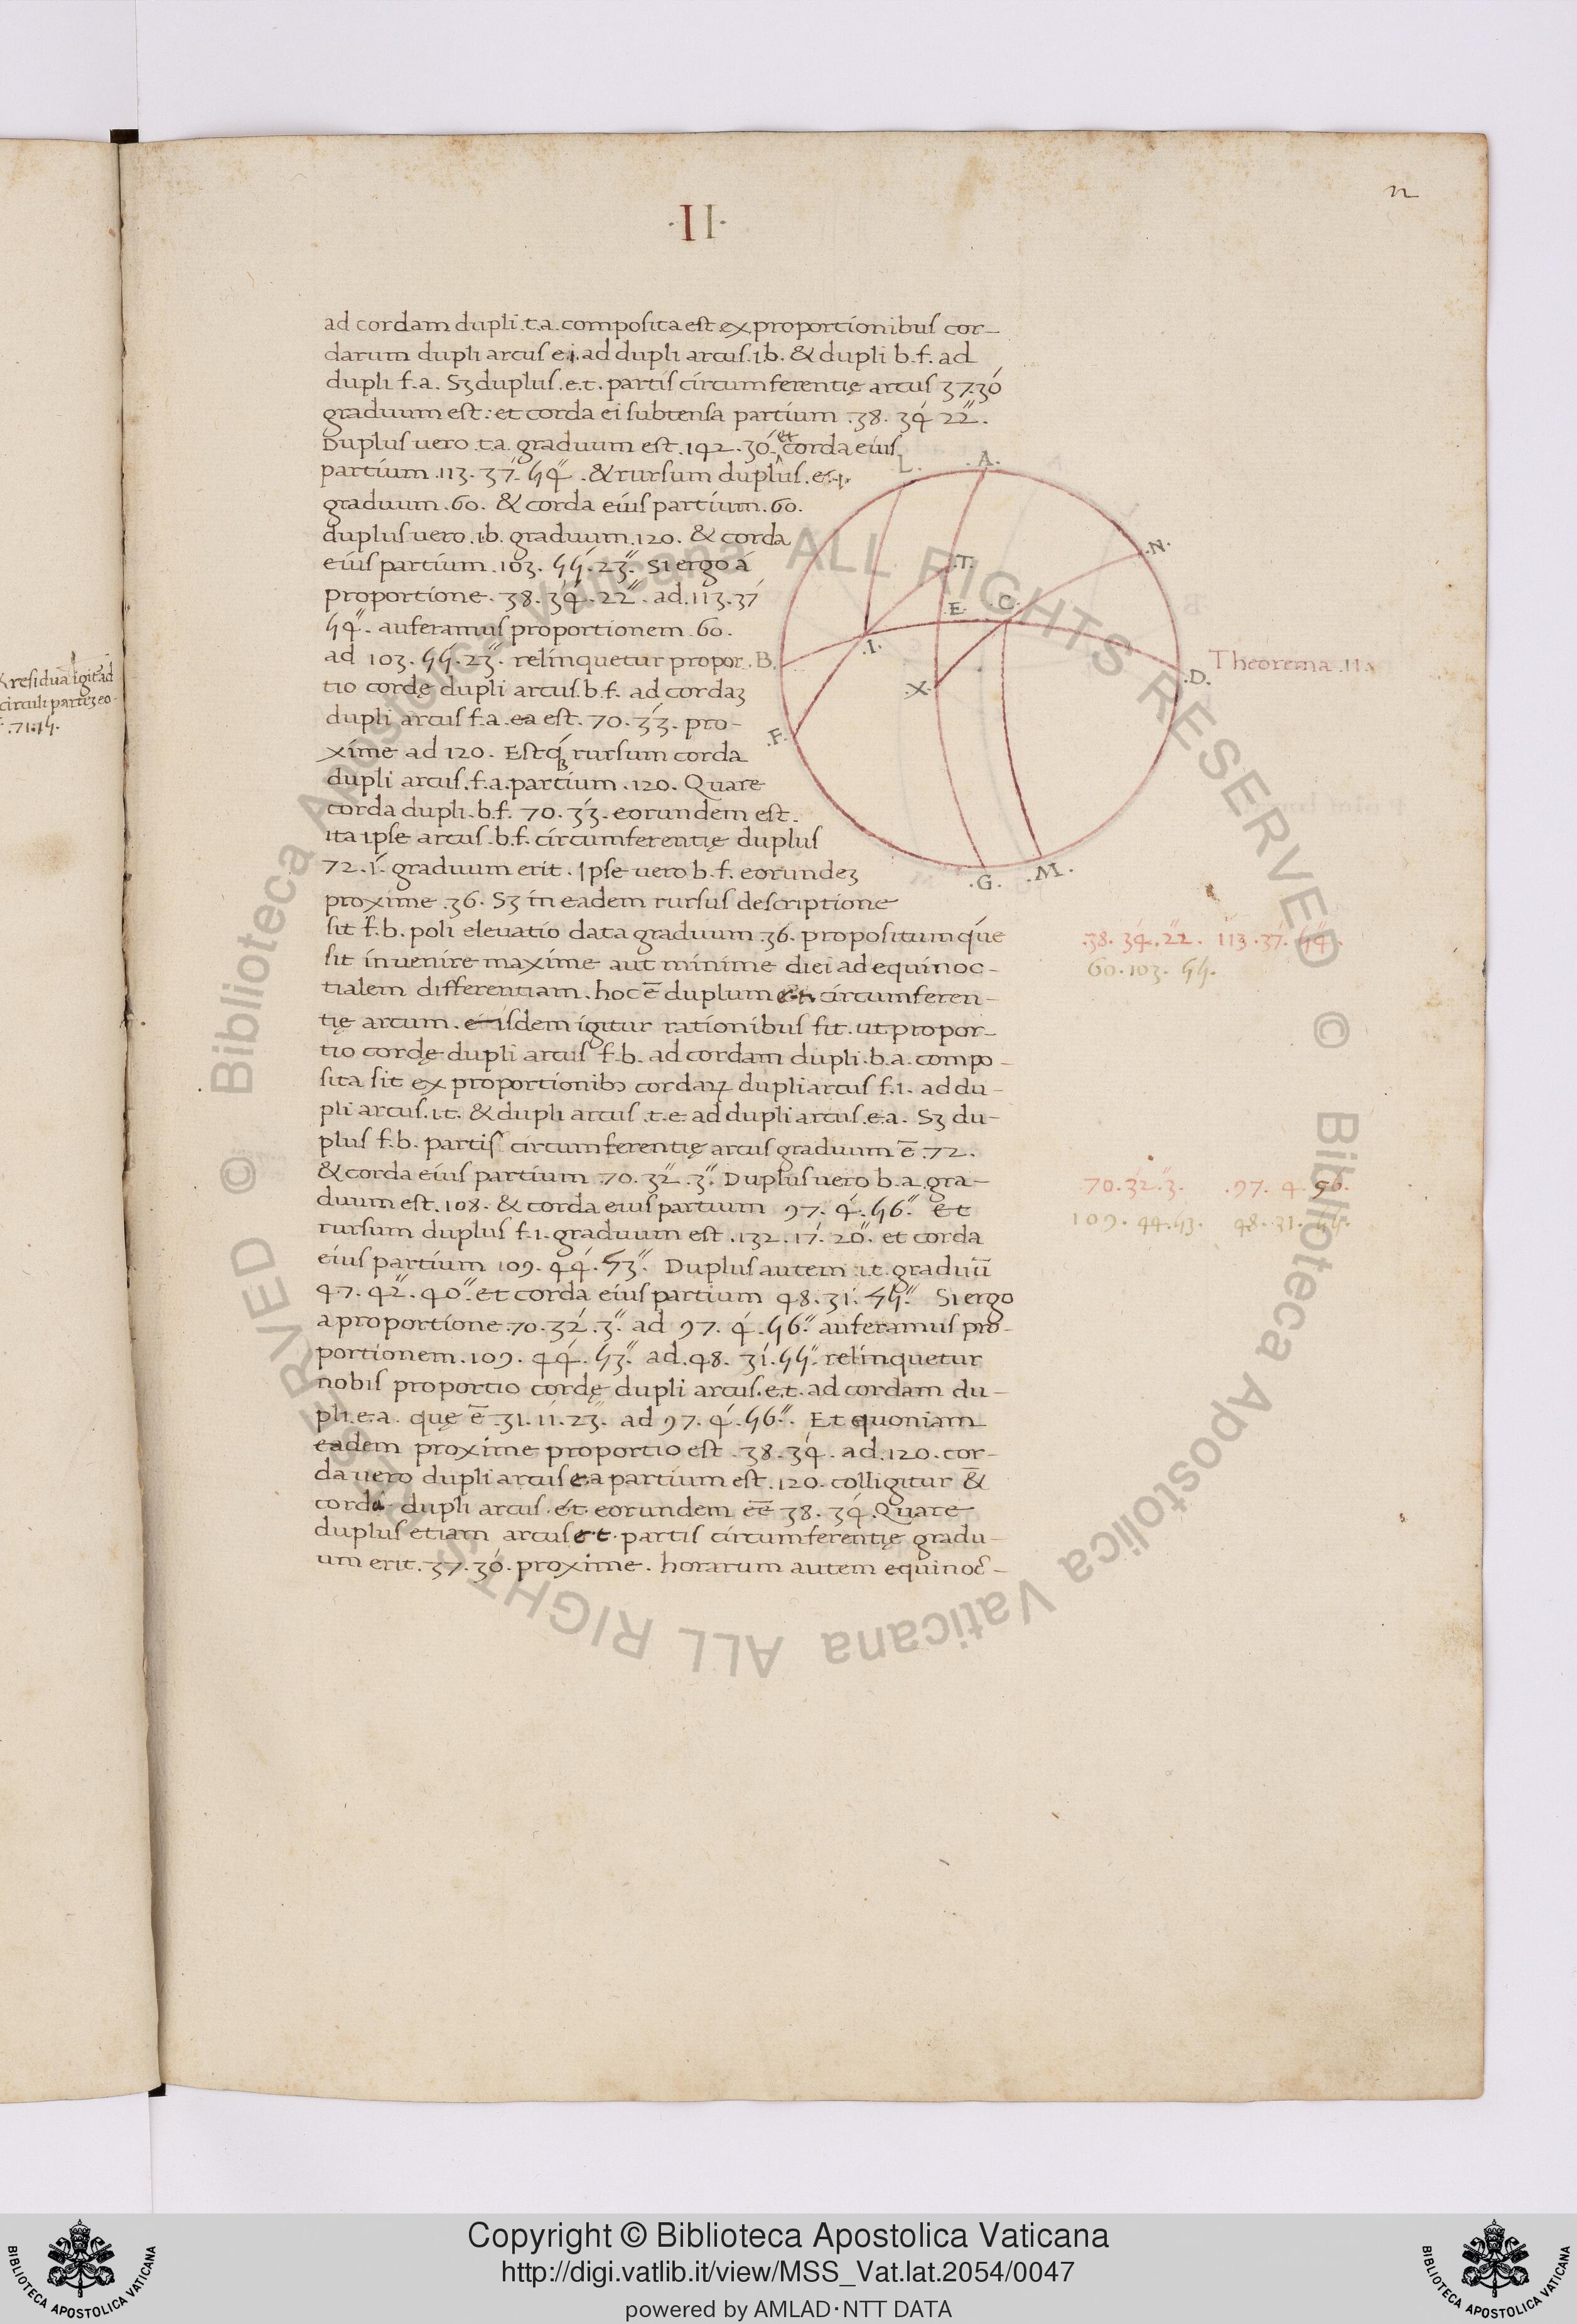 n
·II·
ad cordam dupli .t.a. composita est ex proportionibus cor-
darum dupli arcus e.i. ad dupli arcus .i.b. & dupli b.f. ad
dupli f.a. Sꝫ duplus .e.t. partis circumferentię arcus 37.30́
graduum est: et corda ei subtensa partium .38. 34́ 22̋.
Duplus uero .t.a. graduum est .142. 30́. et corda eius
partium .113. 37́. 54̋. & rursum duplus .e.i.
graduum .60. & corda eius partium .60.
duplus uero .i.b. graduum .120. & corda
eius partium .103. 55́. 23̋. Si ergo á
proportione .38. 34́. 22̋. ad .113. 37́
54̋. auferamus proportionem .60.
ad 103. 55́. 23̋. relinquetur propor
tio cordę dupli arcus .b.f. ad cordaꝫ
dupli arcus f.a. ea est .70. 33́. pro-
xime ad 120. Estqꝫ rursum corda
dupli arcus .f.a. partium .120. Quare
corda dupli .b.f. 70. 33́. eorundem est.
ita ipse arcus .b.f. circumferentię duplus
72. 1́. graduum erit. Ipse uero b.f. eorundeꝫ
proxime .36. Sꝫ in eadem rursus descriptione
sit f.b. poli eleuatio data graduum .36. propositumque
sit inuenire maxime aut minime diei ad equinoc-
tialem differentiam. hoc ē duplum e.t. circumferen-
tię arcum. eisdem igitur rationibus fit. ut propor-
tio cordę dupli arcus f.b. ad cordam dupli .b.a. compo-
sita sit ex proportionibꝰ cordaꝝ dupli arcus f.i. ad du-
pli arcus .i.t. & dupli arcus .t.e. ad dupli arcus .e.a. Sꝫ du-
plus f.b. partis circumferentię arcus graduum ē .72.
& corda eius partium .70. 32̋. 3̋. Duplus uero b.a. gra-
duum est .108. & corda eius partium 97. 4́. 56̋. et
rursum duplus f.i. graduum est .132. 17́. 20̋. et corda
eius partium 109. 44́. 53̋. Duplus autem .i.t. graduū
47. 42̋. 40̋. et corda eius partium 48. 31́. 55̋. Si ergo
a proportione .70. 32́. 3̋. ad 97. 4́. 56̋. auferamus pro-
portionem .109. 44́. 53̋. ad .48. 31́. 55̋. relinquetur
nobis proportio cordę dupli arcus .e.t. ad cordam du-
pli .e.a. quę ē .31. 11́. 23̋. ad 97. 4́. 56̋. Et quoniam
eadem proxime proportio est .38. 34́. ad .120. cor-
da uero dupli arcus ea partium est .120. colligitur &
corda dupli arcus .et. eorundem eē 38. 34́. Quare
duplus etiam arcus et partis circumferentię gradu-
um erit .37. 30́. proxime. horarum autem equinoc̄-
.L.
.A.
.N.
.T.
.E.
.C.
.B.
.I.
.D.
.X.
.F.
.G.
.M.
Theorema .II.
.38. 34́. 22̋. 113. 37́. 54̋.
60. 103. 55.
70. 32. 3. .97. 4. 56.
109. 44. 53. 48. 31. 55.
& residua igitur ad
circuli parteꝫ eo-
.71.15.
© Biblioteca Apostolica Vaticana ALL RIGHTS RESERVED © Biblioteca Apostolica Vaticana ALL RIGHTS RESERVED
Copyright © Biblioteca Apostolica Vaticana
http://digi.vatlib.it/view/MSS_Vat.lat.2054/0047
powered by AMLAD·NTT DATA
BIBLIOTECA APOSTOLICA VATICANA
BIBLIOTECA APOSTOLICA VATICANA